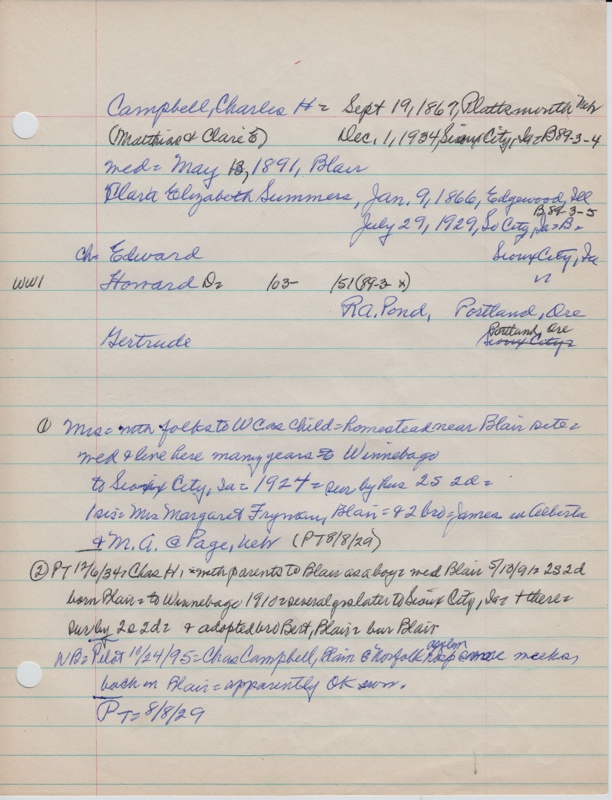 Campbell, Charles H = Sept 19, 1867, Plattsmouth Neb
(Matthias & Clare E) Dec. 1, 1934, Sioux City, Ia = B 89-3-4
med = May 13, 1891, Blair
Clara Elizabeth Summers, Jan. 9, 1866, Edgewood, Ill
B, 89-3-5
July 29, 1929, So City, Ia = B =
ch = Edward Sioux City, Ia
WW1 Howard D = 103- 151 (89-3 x) "
R.A. Pond, Portland, Ore
Portland, Ore
Gertrude Sioux City =
① Mrs = with folks to WC as child = homestead near Blair site =
med & live here many years = to Winnebago
to Sioux City, Ia = 1924 = sur by hus 2S 2d =
1 sis = Mrs Margaret Fryman, Blair = & 2 bro = James in Alberta
& M. A. @ Page, Neb (PT 8/8/29)
② PT 12/6/34 = Chas H, = with parents to Blair as a boy = med Blair 5/13/91 = 2S 2d
born Blair = to Winnebago 1910 = several yrs later to Sioux City, Ia = + there =
sur by 2s 2d = & adopted bro Bert, Blair = bur Blair
asylum
NB = Pilot 10/24/95 = Chas Campbell, Blain @ Norfolk hosp some weeks,
back in Blair = apparently OK now.
PT = 8/8/29